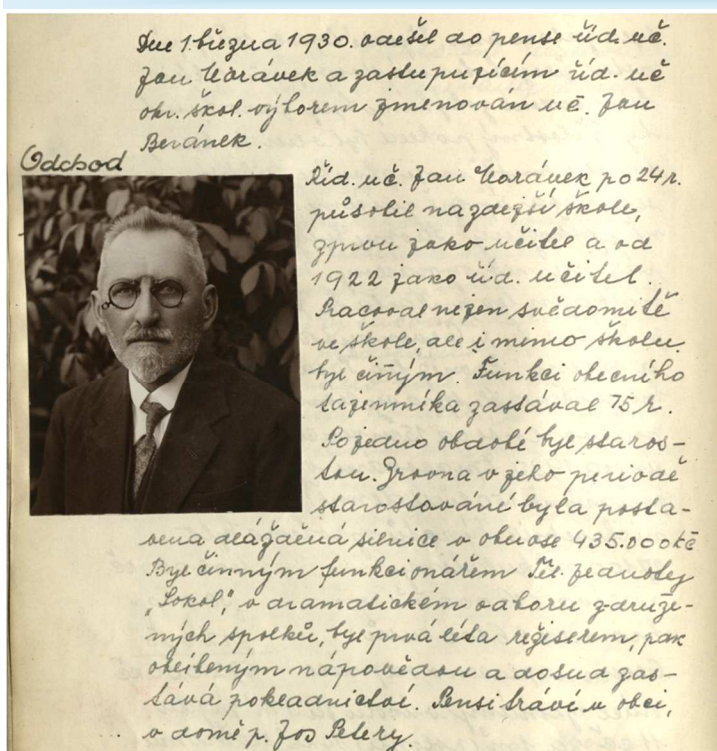 Dne 1. března 1930. odešel do pense říd. uč.
Jan Morávek a zastupujícím říd. uč
okr. škol. výborem jmenován uč. Jan
Beránek.
Odchod
Říd. uč. Jan Morávek po 24 r.
působil na zdejší škole,
zprvu jako učitel a od
1922 jako říd. učitel.
Pracoval nejen svědomitě
ve škole, ale i mimo školu
byl činým. Funkci obecního
tajemníka zastával 15 r.
Po jedno období byl staros-
tou. Zrovna v jeho periodě
starostování byla posta-
vena dlážděná silnice v obnose 435.000 Kč
Byl činným funkcionářem Těl. jednoty
„Sokol“, v dramatickém odboru združe-
ných spolků, byl prvá léta režiserem, pak
oblíbeným nápovědou a dosud zas-
tává pokladnictví. Pensi tráví v obci,
v domě p. Jos Petery.